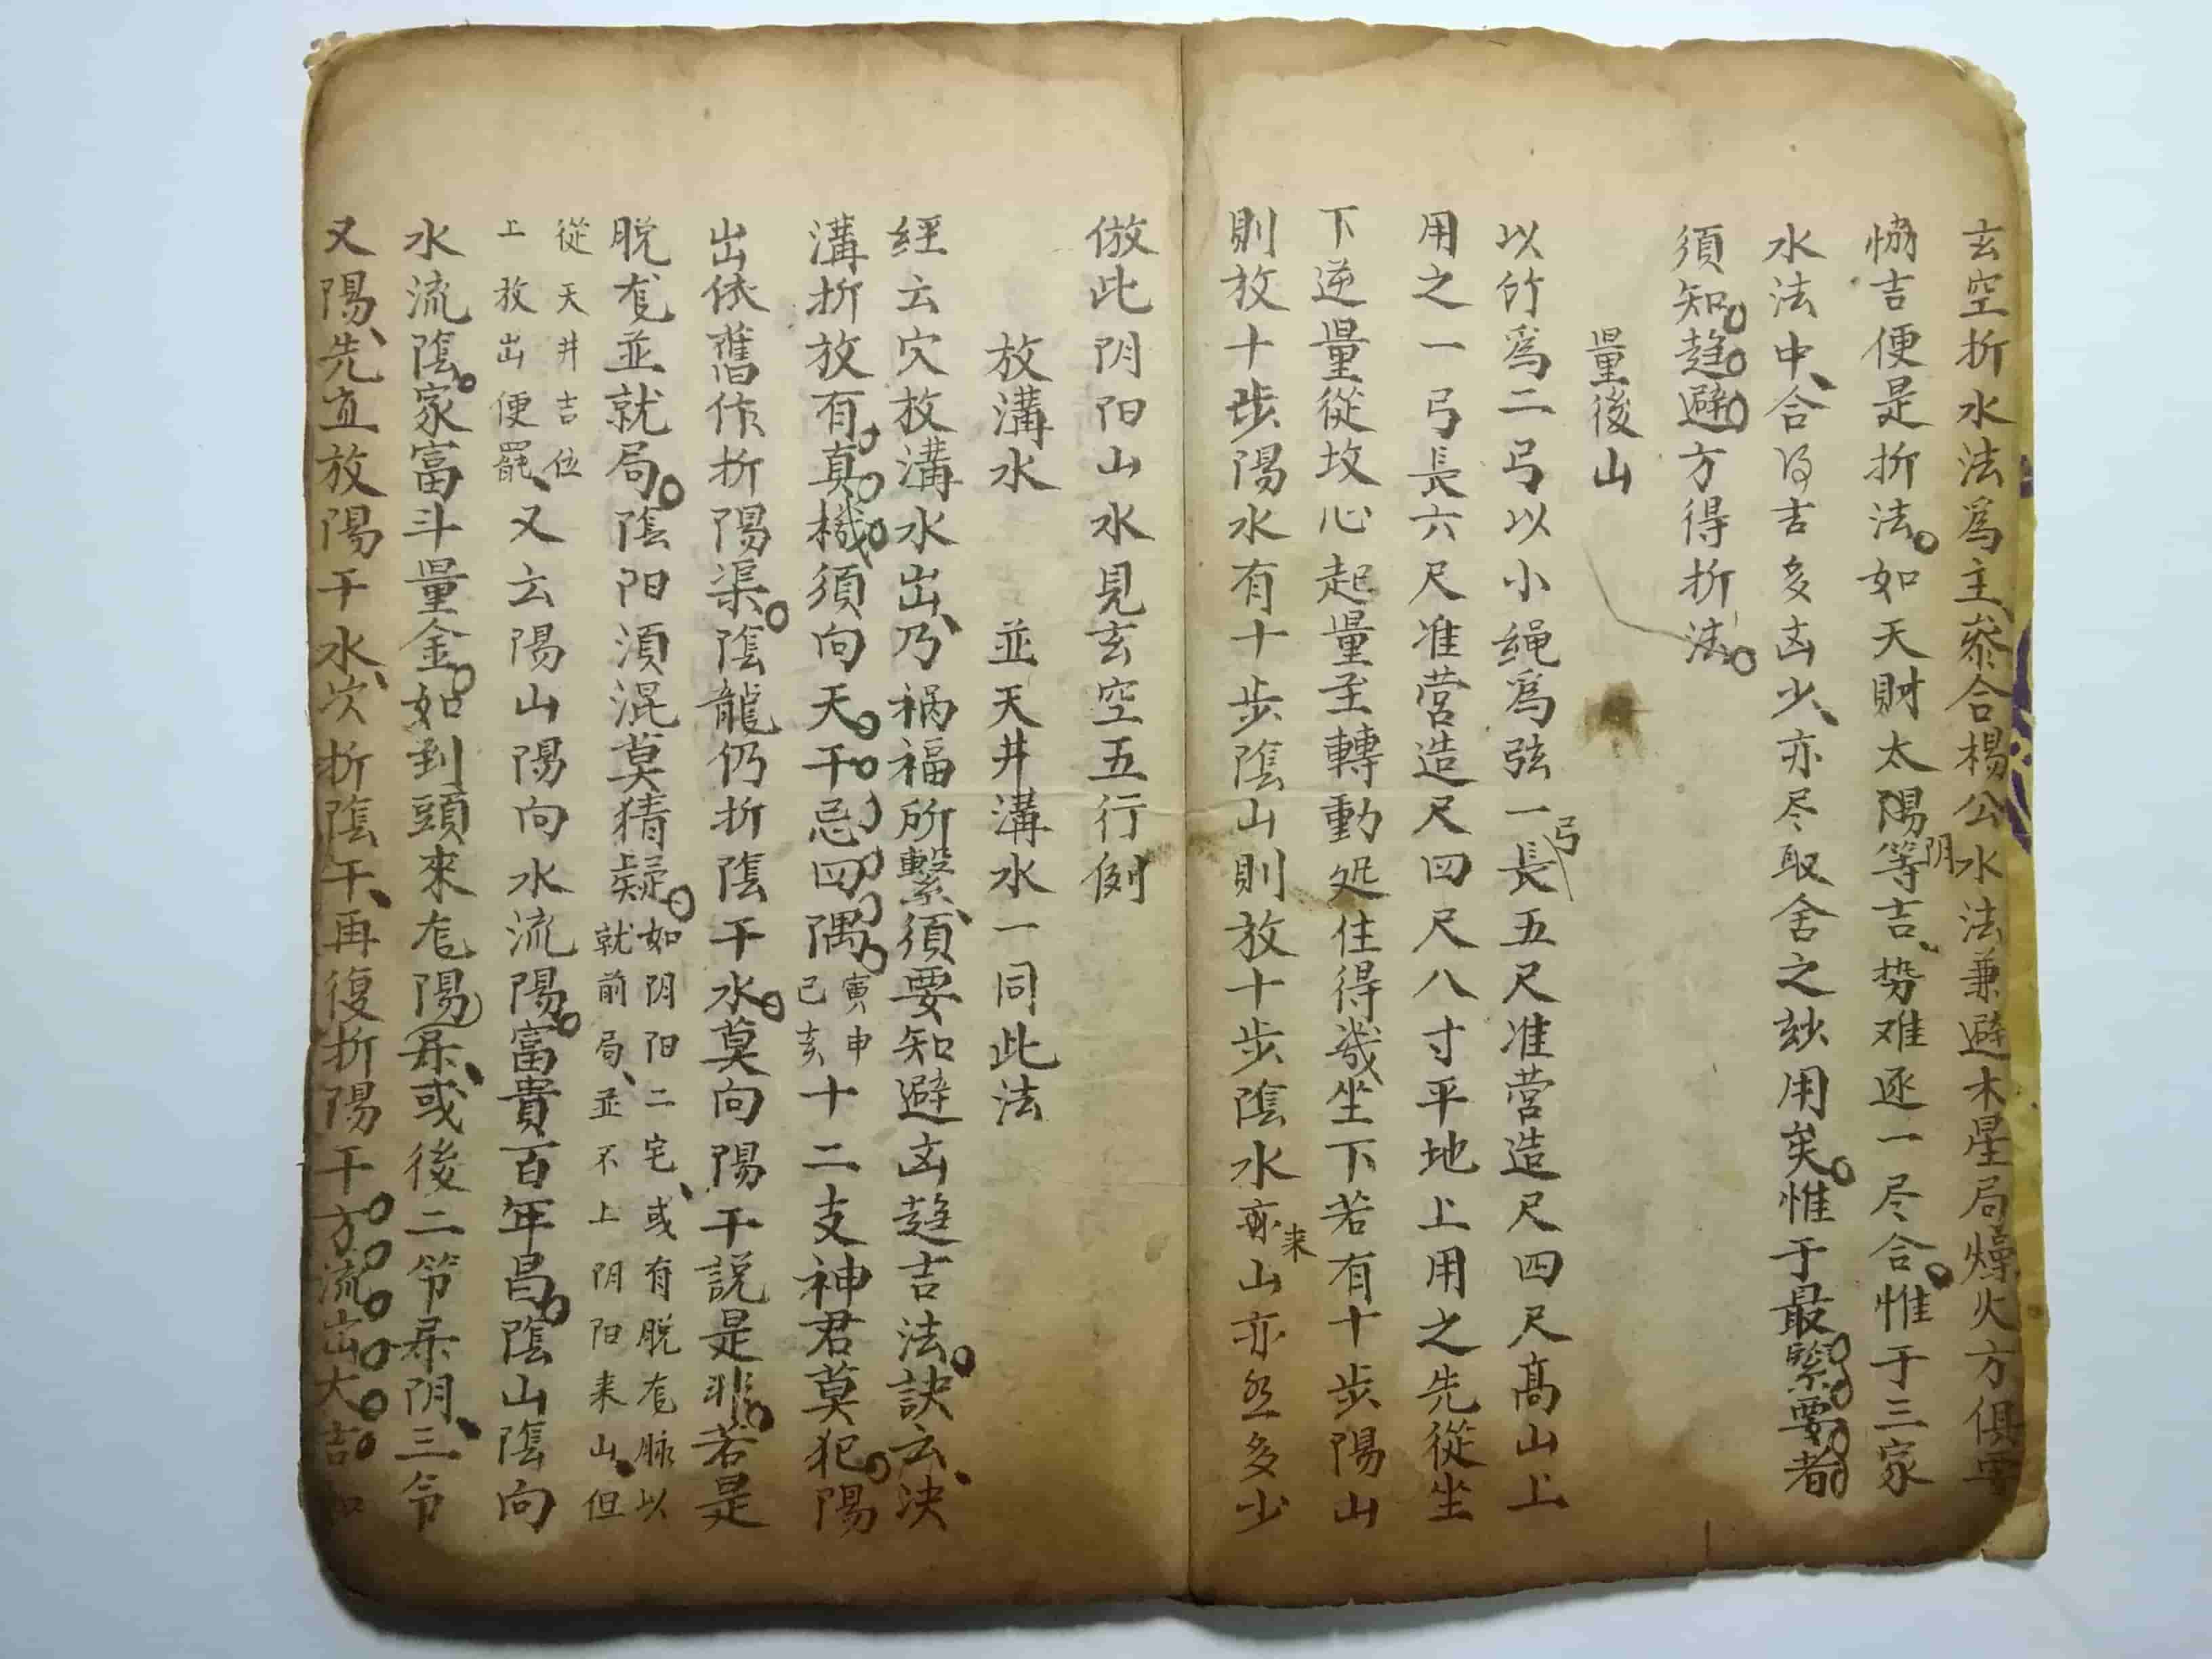 玄空折水法爲主叅合楊公水法兼避木星局燥火方俱要
恊吉便是折法如天財太陽阴等吉势难逐一尽合惟于三家
水法中合得吉多凶少亦尽取舍之玅用矣惟于最緊要者
須知趋避方得折法
量後山
以竹爲二弓以小绳爲弦一弓長五尺准营造尺四尺高山上
用之一弓長六尺准营造尺四尺八寸平地上用之先從坐
下逆量從坟心起量至轉動处住得幾坐下若有十步陽山
則放十步陽水有十步隂山則放十步隂水亦来山亦然多少
倣此阴阳山水見玄空五行例
放溝水 並天井溝水一同此法
經云穴放溝水出乃禍福所繫須要知避凶趋吉法訣云决
溝折放有真機須向天干忌四隅寅申己亥十二支神君莫犯陽
出依舊作折陽渠隂龍仍折隂干水莫向陽干説是非若是
脱龙並就局隂阳須混莫猜疑如阴阳二宅或有脱龙脉以
就前局並不上阴阳来山但
從天井吉位
上放出便罷又云陽山陽向水流陽富貴百年昌隂山隂向
水流隂家富斗量金如到頭來龙陽渠或後二节屬阴三节
又陽先直放陽干水次折隂干再復折陽干方流出大吉如